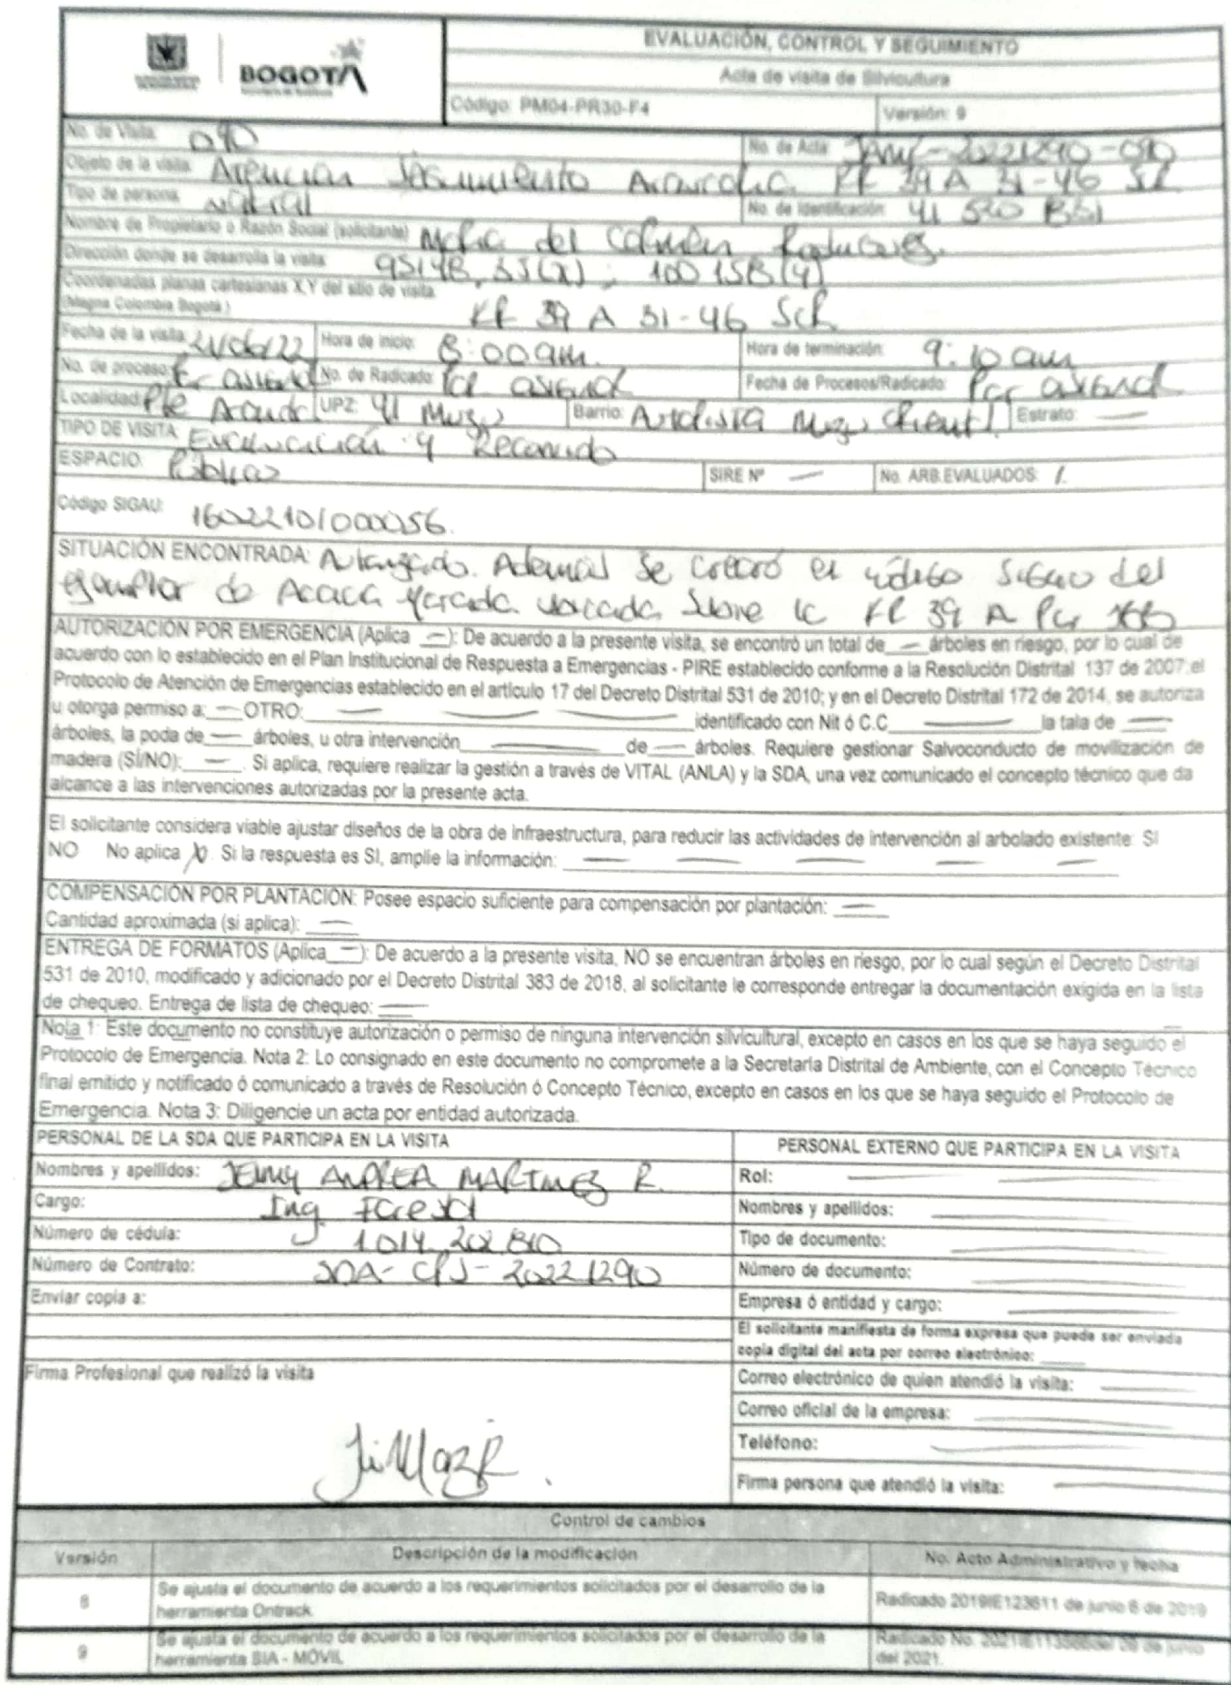 BOGOTÁ
EVALUACIÓN, CONTROL Y SEGUIMIENTO
Acta de visita de Silvicultura
Código: PM04-PR30-F4 Versión: 9
No. de Visita: 090 No. de Acta: JAMR-20221290-090
Objeto de la visita: Atención Seguimiento KR 39 A 31-46 Sur
Tipo de persona: natural No. de identificación: 41 520
Nombre de Propietario o Razón Social (solicitante) Maria del Carmen
Dirección donde se desarrolla la visita: 95148,55(X); 100158(Y)
Coordenadas planas cartesianas X,Y del sitio de visita.
(Magna Colombia Bogotá) KR 39 A 31-46 Sur
Fecha de la visita: Hora de inicio: 8:00am. Hora de terminación: 9:10 am
No. de proceso: Por asignar No. de Radicado: Por asignar Fecha de Procesos/Radicado: Por asignar
Localidad: Pte Aranda UPZ: 41 Muzu Barrio: Autopista Muzu Oriental Estrato: —
TIPO DE VISITA: Evaluación y Recorrido
ESPACIO: Público SIRE Nº — No. ARB.EVALUADOS: 1.
Código SIGAU: 16022101000056.
SITUACIÓN ENCONTRADA: Además se el código Sigau del
ejemplar de Acacia morada ubicada sobre la KR 39 A
AUTORIZACIÓN POR EMERGENCIA (Aplica —): De acuerdo a la presente visita, se encontró un total de — árboles en riesgo, por lo cual de
acuerdo con lo establecido en el Plan Institucional de Respuesta a Emergencias - PIRE establecido conforme a la Resolución Distrital 137 de 2007;el
Protocolo de Atención de Emergencias establecido en el artículo 17 del Decreto Distrital 531 de 2010; y en el Decreto Distrital 172 de 2014, se autoriza
u otorga permiso a: — OTRO: — — — — identificado con Nit ó C.C — la tala de —
árboles, la poda de — árboles, u otra intervención — de — árboles. Requiere gestionar Salvoconducto de movilización de
madera (SÍ/NO): —. Si aplica, requiere realizar la gestión a través de VITAL (ANLA) y la SDA, una vez comunicado el concepto técnico que da
alcance a las intervenciones autorizadas por la presente acta.
El solicitante considera viable ajustar diseños de la obra de infraestructura, para reducir las actividades de intervención al arbolado existente: SI
NO No aplica X Si la respuesta es SI, amplie la información: — — — — —
COMPENSACIÓN POR PLANTACIÓN: Posee espacio suficiente para compensación por plantación: —
Cantidad aproximada (si aplica): —
ENTREGA DE FORMATOS (Aplica —): De acuerdo a la presente visita, NO se encuentran árboles en riesgo, por lo cual según el Decreto Distrital
531 de 2010, modificado y adicionado por el Decreto Distrital 383 de 2018, al solicitante le corresponde entregar la documentación exigida en la lista
de chequeo. Entrega de lista de chequeo: —
Nota 1: Este documento no constituye autorización o permiso de ninguna intervención silvicultural, excepto en casos en los que se haya seguido el
Protocolo de Emergencia. Nota 2: Lo consignado en este documento no compromete a la Secretaría Distrital de Ambiente, con el Concepto Técnico
final emitido y notificado ó comunicado a través de Resolución ó Concepto Técnico, excepto en casos en los que se haya seguido el Protocolo de
Emergencia. Nota 3: Diligencie un acta por entidad autorizada.
PERSONAL DE LA SDA QUE PARTICIPA EN LA VISITA PERSONAL EXTERNO QUE PARTICIPA EN LA VISITA
Nombres y apellidos: JENNY ANDREA MARTINEZ R. Rol: —
Cargo: Ing. Forestal Nombres y apellidos: —
Número de cédula: 1014 202 810 Tipo de documento: —
Número de Contrato: SDA-CPS-20221290 Número de documento: —
Enviar copia a: Empresa ó entidad y cargo: —
El solicitante manifiesta de forma expresa que puede ser enviada
copia digital del acta por correo electrónico:
Firma Profesional que realizó la visita Correo electrónico de quien atendió la visita: —
Correo oficial de la empresa: —
Teléfono: —
Firma persona que atendió la visita: —
Control de cambios
Versión Descripción de la modificación No. Acto Administrativo y fecha
8 Se ajusta el documento de acuerdo a los requerimientos solicitados por el desarrollo de la
herramienta Ontrack. Radicado 2019IE123611 de junio 6 de 2019
9 Se ajusta el documento de acuerdo a los requerimientos solicitados por el desarrollo de la
herramienta SIA - MÓVIL Radicado No. de junio
del 2021.